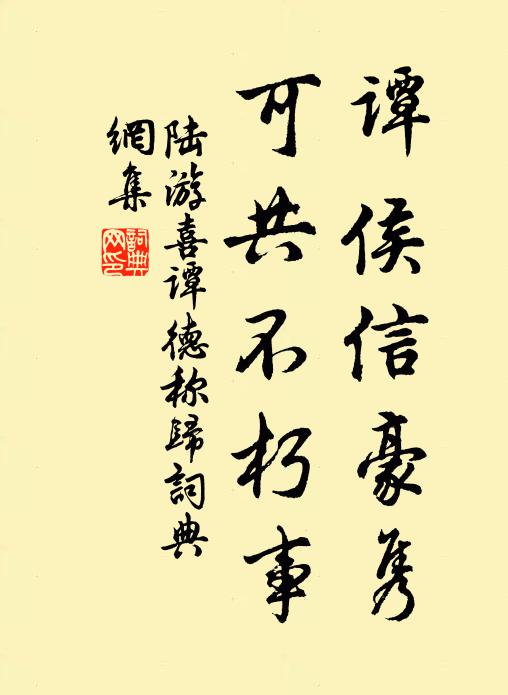 谭侯信豪隽
可共不朽事
陆游喜谭德称歸詞典
網集
詞典网印